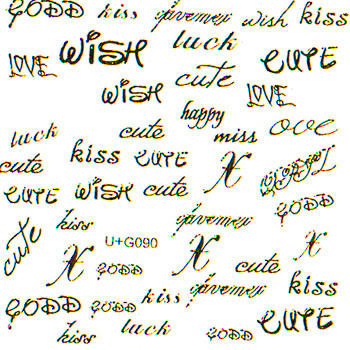 GODD kiss wish kiss
LOVE WISH luck CUTE
WISH cute LOVE
happy
luck cute miss OVE
cute kiss CUTE X
CUTE WISH cute GODD
kiss
cute U+G090
X GODD X cute X
GODD GODD kiss kiss
kiss luck GODD CUTE